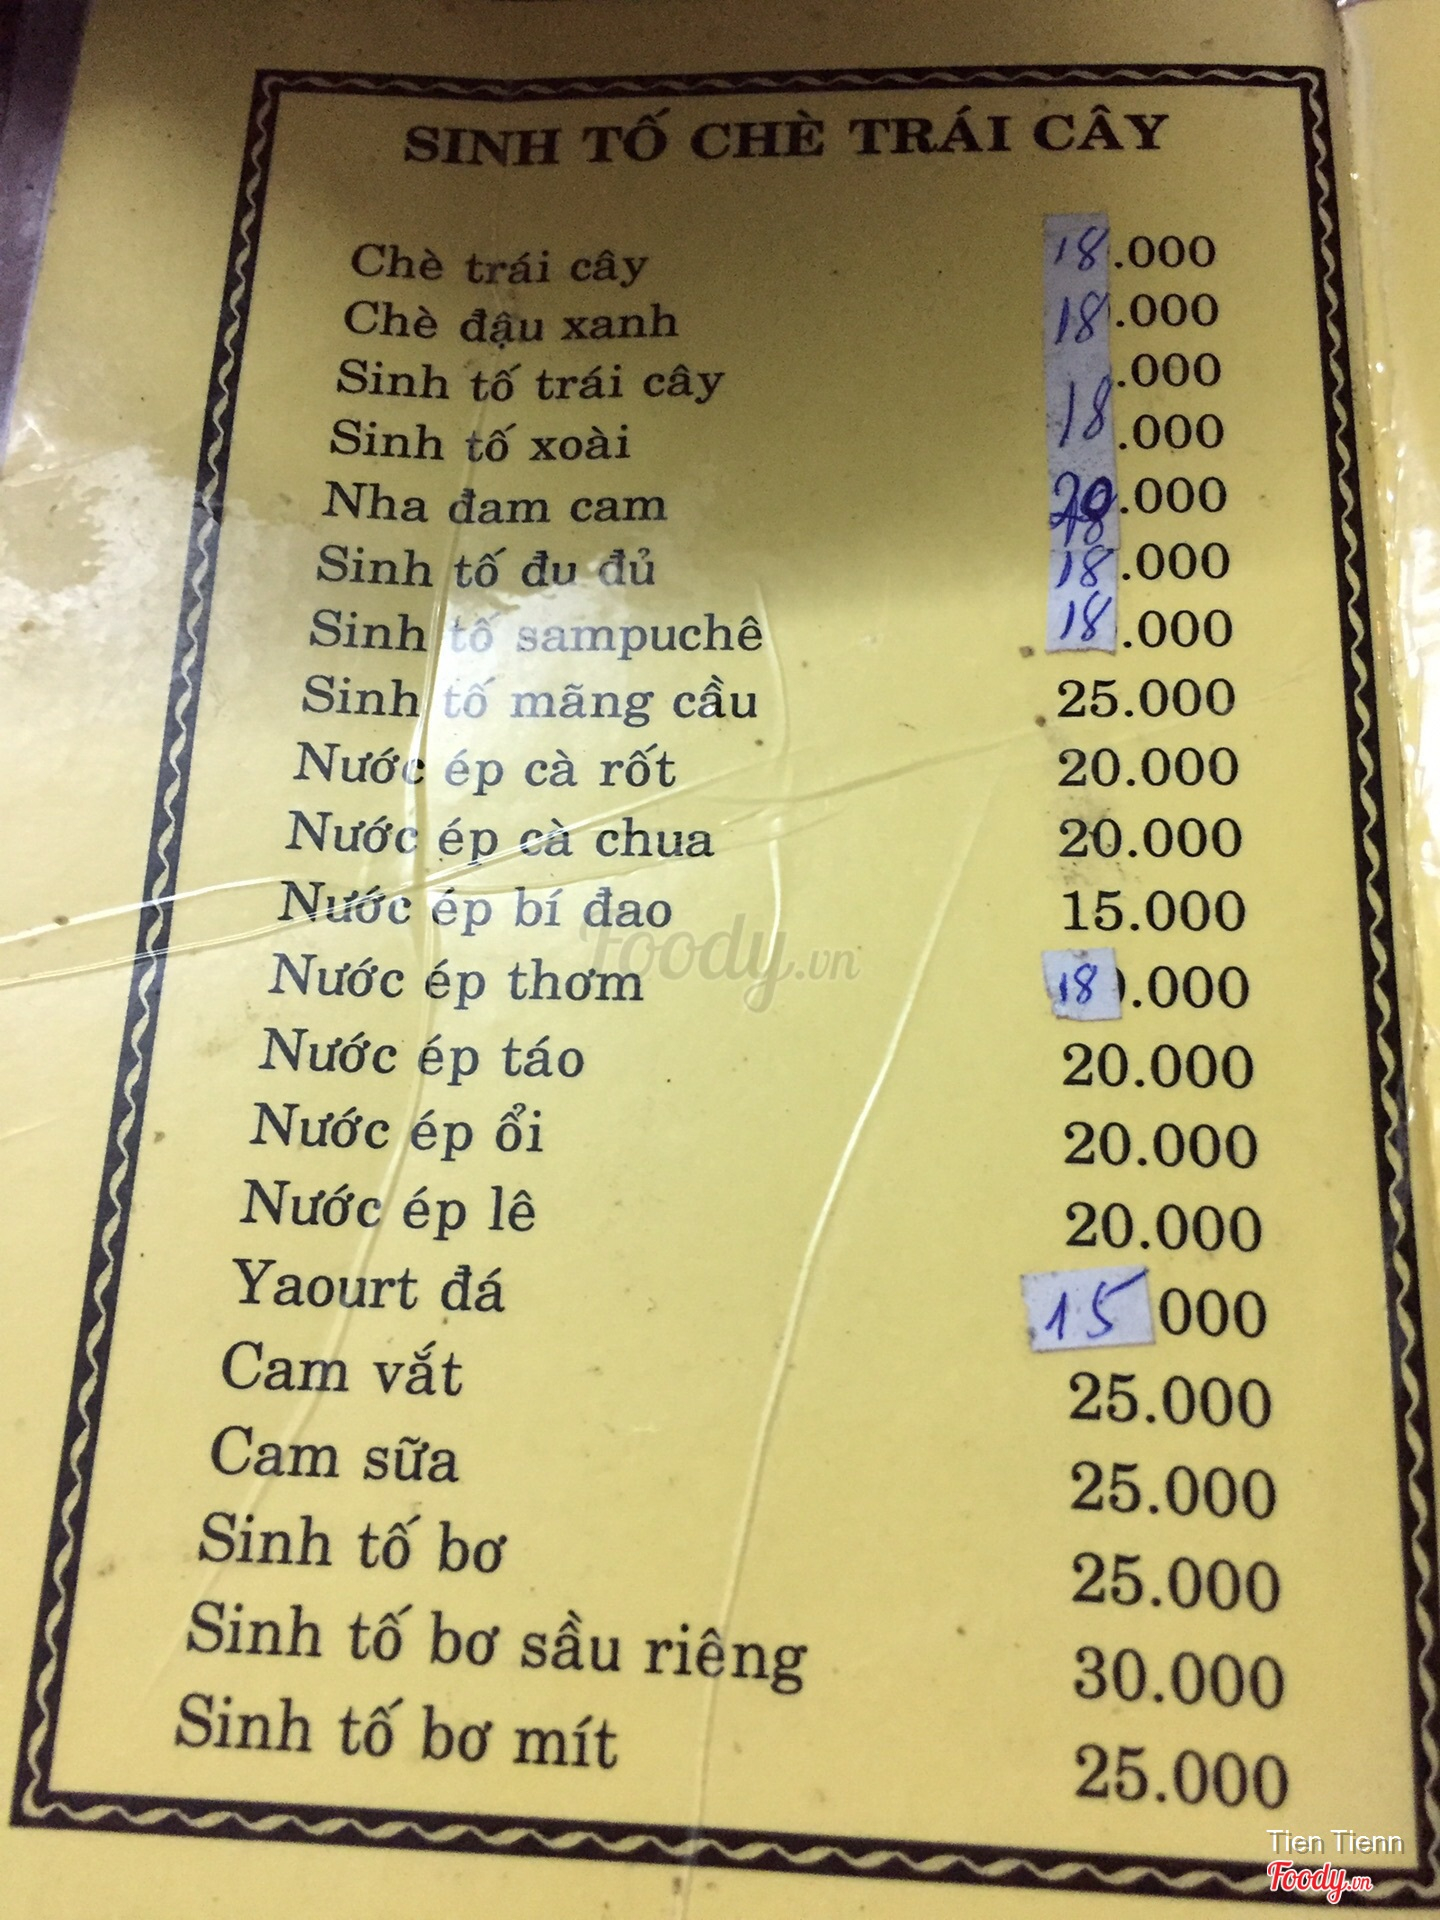 SINH TỐ CHÈ TRÁI CÂY
Chè trái cây 18.000
Chè đậu xanh 18.000
Sinh tố trái cây .000
Sinh tố xoài 18.000
Nha đam cam 20.000
Sinh tố đu đủ 18.000
Sinh tố sampuchê 18.000
Sinh tố mãng cầu 25.000
Nước ép cà rốt 20.000
Nước ép cà chua 20.000
Nước ép bí đao 15.000
Nước ép thơm 18.000
Nước ép táo 20.000
Nước ép ổi 20.000
Nước ép lê 20.000
Yaourt đá 15 000
Cam vắt 25.000
Cam sữa 25.000
Sinh tố bơ 25.000
Sinh tố bơ sầu riêng 30.000
Sinh tố bơ mít 25.000
Foody.vn
Tien Tienn
Foody.vn